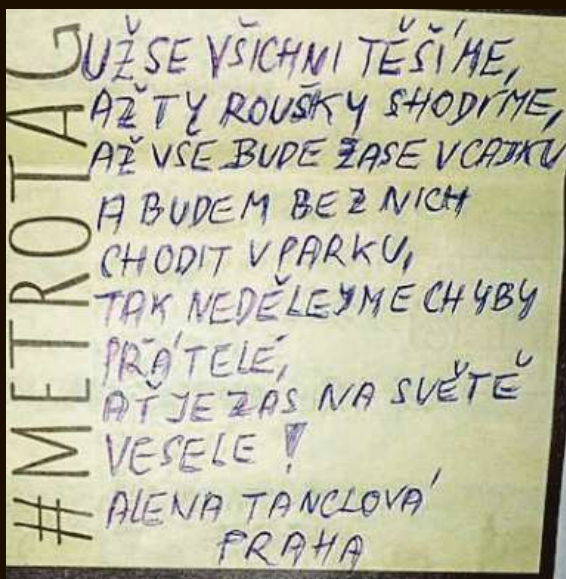 #METROTAG
UŽ SE VŠICHNI TĚŠÍME,
AŽ TY ROUŠKY SHODÍME,
AŽ VŠE BUDE ZASE V CAJKU
A BUDEM BEZ NICH
CHODIT V PARKU,
TAK NEDĚLEJME CHYBY
PŘÁTELÉ,
AŤ JE ZAS NA SVĚTĚ
VESELE !
ALENA TANCLOVÁ
PRAHA